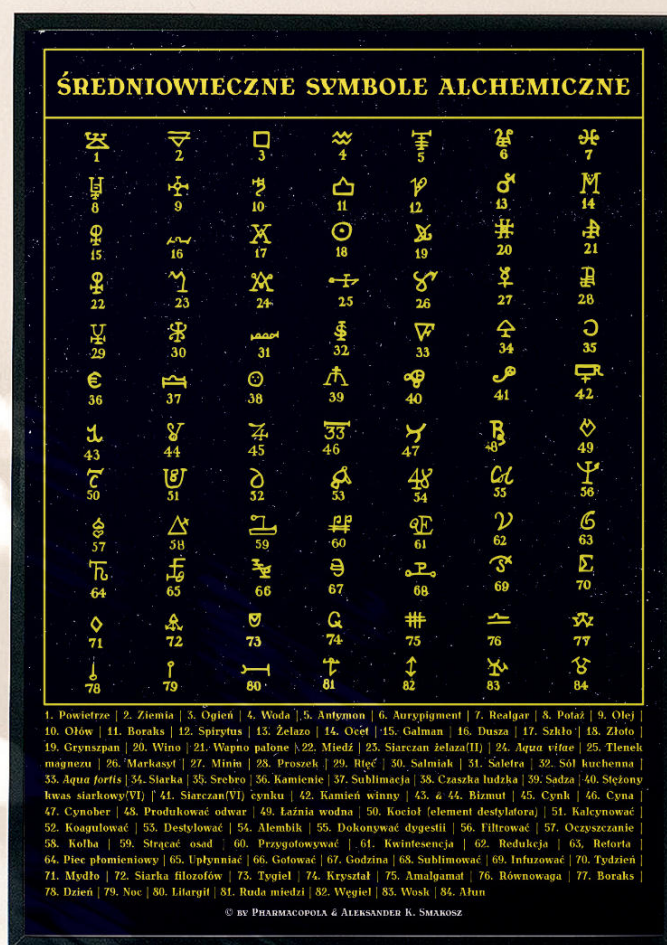 ŚREDNIOWIECZNE SYMBOLE ALCHEMICZNE
1 2 3 4 5 6 7
8 9 10 11 12 13 14
15 16 17 18 19 20 21
22 23 24 25 26 27 28
29 30 31 32 33 34 35
36 37 38 39 40 41 42
43 44 45 46 47 48 49
50 51 52 53 54 55 56
57 58 59 60 61 62 63
64 65 66 67 68 69 70
71 72 73 74 75 76 77
78 79 80 81 82 83 84
1. Powietrze | 2. Ziemia | 3. Ogień | 4. Woda | 5. Antymon | 6. Aurypigment | 7. Realgar | 8. Potaż | 9. Olej |
10. Ołów | 11. Boraks | 12. Spirytus | 13. Żelazo | 14. Ocet | 15. Galman | 16. Dusza | 17. Szkło | 18. Złoto |
19. Grynszpan | 20. Wino | 21. Wapno palone | 22. Miedź | 23. Siarczan żelaza(II) | 24. Aqua vitae | 25. Tlenek
magnezu | 26. Markasyt | 27. Minia | 28. Proszek | 29. Rtęć | 30. Salmiak | 31. Saletra | 32. Sól kuchenna |
33. Aqua fortis | 34. Siarka | 35. Srebro | 36. Kamienie | 37. Sublimacja | 38. Czaszka ludzka | 39. Sadza | 40. Stężony
kwas siarkowy(VI) | 41. Siarczan(VI) cynku | 42. Kamień winny | 43. & 44. Bizmut | 45. Cynk | 46. Cyna |
47. Cynober | 48. Produkować odwar | 49. Łaźnia wodna | 50. Kocioł (element destylatora) | 51. Kalcynować |
52. Koagulować | 53. Destylować | 54. Alembik | 55. Dokonywać dygestii | 56. Filtrować | 57. Oczyszczanie |
58. Kolba | 59. Strącać osad | 60. Przygotowywać | 61. Kwintesencja | 62. Redukcja | 63. Retorta |
64. Piec płomieniowy | 65. Upłynniać | 66. Gotować | 67. Godzina | 68. Sublimować | 69. Infuzować | 70. Tydzień |
71. Mydło | 72. Siarka filozofów | 73. Tygiel | 74. Kryształ | 75. Amalgamat | 76. Równowaga | 77. Boraks |
78. Dzień | 79. Noc | 80. Litargit | 81. Ruda miedzi | 82. Węgiel | 83. Wosk | 84. Ałun
© BY PHARMACOPOLA & ALEKSANDER K. SMAKOSZ